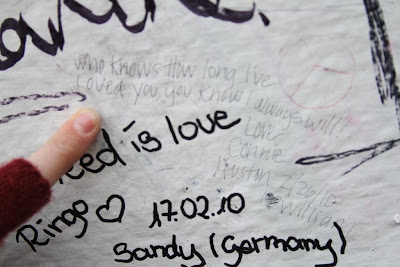 who knows How long I've
loved you, you know I always will!
Love
Connie
Houston 1/26/10
William
need is love
Ringo ♡ 17.02.10
Sandy (Germany)